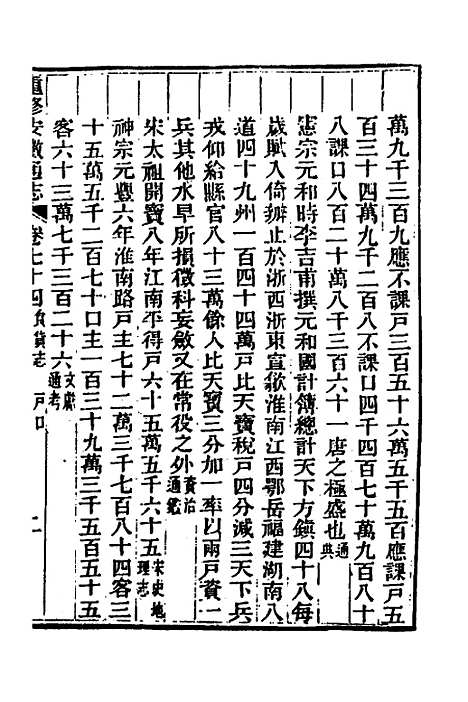 萬九千三百九應不課戸三百五十六萬五千五百應課戸五
百三十四萬九千二百八不課口四千四百七十萬九百八十
八課口八百二十萬八千三百六十一唐之極盛也通典
憲宗元和時李吉甫撰元和國計簿總計天下方鎮四十八每
歲賦入倚辦止於浙西浙東宣歙淮南江西鄂岳福建湖南八
道四十九州一百四十四萬戸比天寶稅戸四分減三天下兵
戎仰給縣官八十三萬餘人比天寶三分加一率以兩戸資一
兵其他水旱所損徵科妄斂又在常役之外資治通鑑
宋太祖開寶八年江南平得戸六十五萬五千六十五宋史地理志
神宗元豐六年淮南路戸主七十二萬三千七百八十四客三
十五萬五千二百七十口主一百三十九萬三千五百五十五
客六十三萬七千三百二十六文獻通考
重修安徽通志 卷七十四食貨志 戸口 二